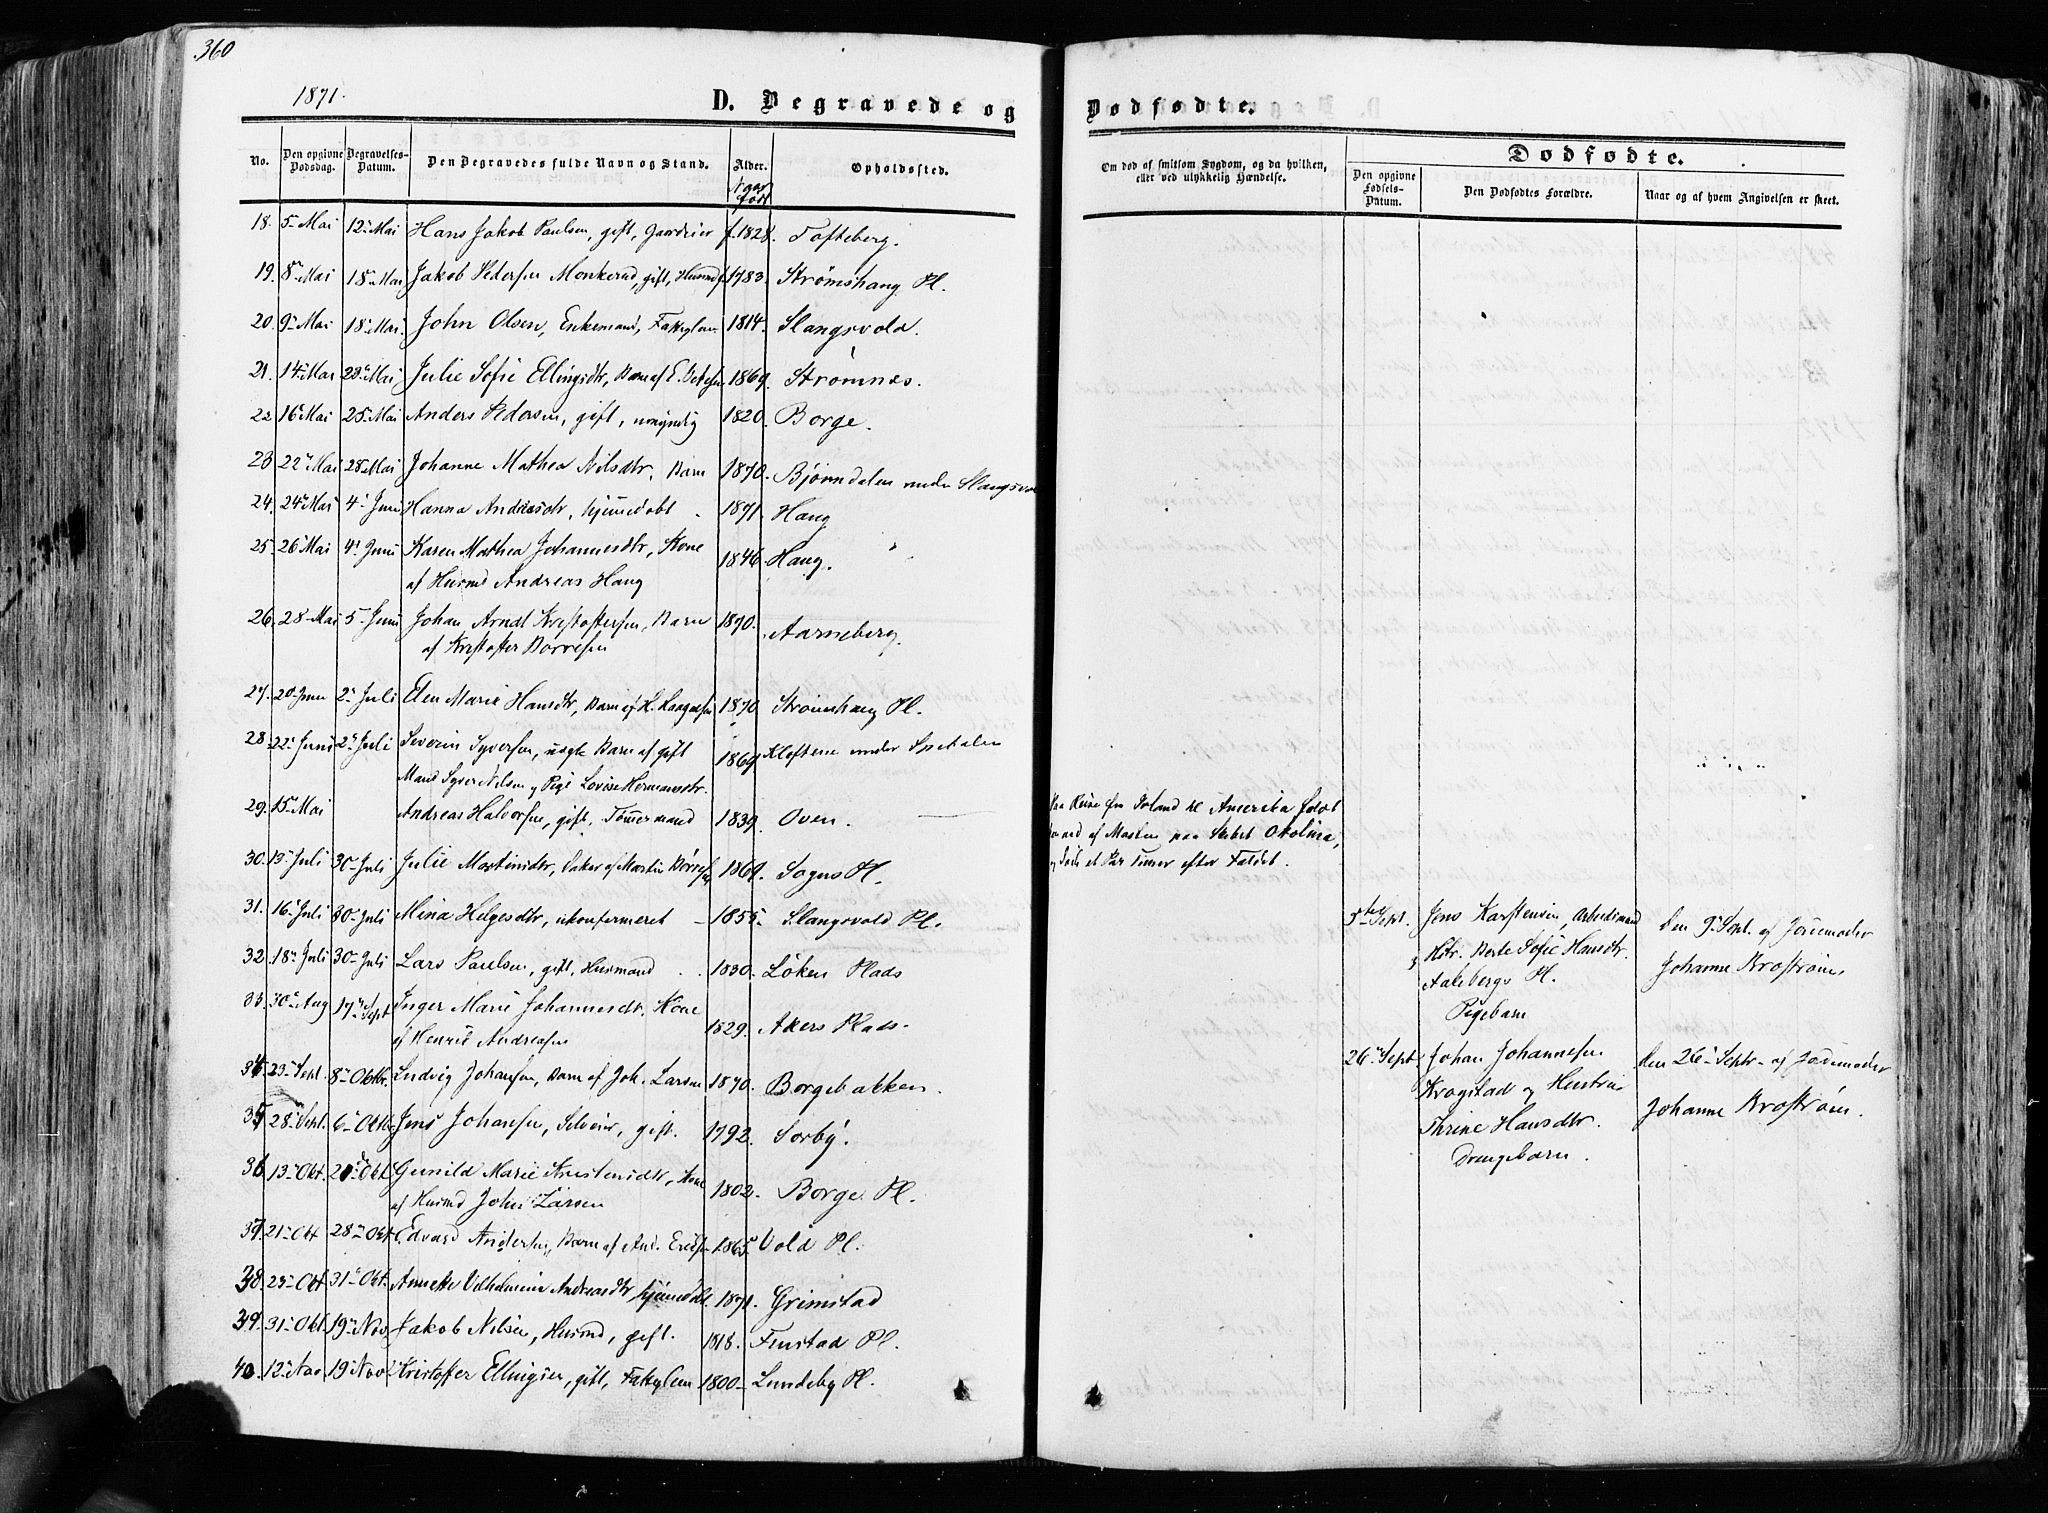 360
1871.
D. Begravede og
No. Den opgivne Dødsdag. Begravelses-Datum. Den Begravedes fulde Navn og Stand. Alder. Opholdssted.
Naar født
18. 5 Mai 12 Mai Hans Jakob Paulsen, gift, Gaardeier f. 1828. Tofteberg.
19. 8 Mai 18 Mai Jakob Pedersen Monkerud, gift, Husmd f. 1783. Strømshaug Pl.
20. 9 Mai 18 Mai John Olsen, Enkemand, Fattiglem 1814. Slangsvold.
21. 14 Mai 28 Mai Julie Sofie Ellingsdtr, Barn af E. 1869. Strømnes.
22 16 Mai 25 Mai Anders Pedersen, gift, umyndig 1820. Borge.
23 22 Mai 28 Mai Johanne Mathea Nilsdtr. Barn 1870. Bjørndalen under Slangsvo
24. 24 Mai 4 Juni Hanna Andreasdtr, hjemmedøbt 1871. Haug
25. 26 Mai 4 Juni Karen Mathea Johannesdtr, Kone
af Husmd Andreas Haug 1846. Haug.
26. 28 Mai 5 Juni Johan Arndt Kristoffersen, Barn 1870. Aarneberg.
af Kristoffer Borresen
27. 20 Juni 2 Juli Elen Marie Hansdtr, Barn af H. Haagensen 1870 Strømshaug Pl.
28. 22 Juni 2 Juli Severin Syversen, uægte Barn af gift
Mand Syver Nilsen og Pige Lovise Hermansdtr. 1869 Kloftene under Spetalen
29. 15 Mai Andreas Halvorsen, gift, Tømmermand 1839. Oven.
30. 13 Juli 30 Juli Julie Martinsdtr, Datter af Martin Børresen 1869. Sogns Pl.
31. 16 Juli 30 Juli Mina Helgesdtr, ukonfirmeret 1855. Slangsvold Pl.
32. 18 Juli 30 Juli Lars Paulsen, gift, Husmand 1830. Løken Plads
33. 30 Aug 17 Sept Inger Marie Johannesdtr. Kone
af Henrik Andreasen 1829. Akers Plads.
34 23 Sept. 8 Oktbr. Ludvig Johansen, Barn af Joh. Larsen 1870. Borgebakken.
35 28 Sept. 6 Oktbr Jens Johansen, Selveier, gift. 1792. Sorby.
36 13 Okt. Okt Gunild Marie Kristensdtr, Kone
af Husmd Johs Larsen 1802. Borge Pl.
37 21 Okt 28 Okt Edvard Andersen, Barn af And. Eriksen 1865 Vold Pl.
38. 23 Okt 31 Okt. Annette Vilhelmine Andreasdtr, hjemmedøbt. 1871. Grimstad
39. 31 Okt. 19 Nov. Jakob Nilsen, Husmd, gift. 1818. Finstad Pl.
40. 12 Nov 19 Nov Kristoffer Ellingsen, gift, Fattiglem 1800 Lundeby Pl.
Dødfødte.
Om død af smitsom Sygdom, og da hvilken, eller ved ulykkelig Hændelse.
Dødfødte.
Den opgivne Fødsels-Datum. Den Dødfødtes Forældre. Naar og af hvem Angivelsen er skeet.
Paa Reise fra Irland til Amerika faldt
ned af Masten paa Skibet Okolina,
og døde et Par Timer efter Faldet.
5te Sept. Jens Karstensen, Arbeidsmand
Hstr. Berte Sofie Hansdtr.
Aalebergs Pl.
Pigebarn
den 9 Sept. af Jordemoder
Johanne Brostrøm.
26 Sept Johan Johannesen
Krogstad og Hustru
Thrine Hansdtr.
Drengebarn.
den 26 Septr. af Jordemoder
Johanne Brostrøm.